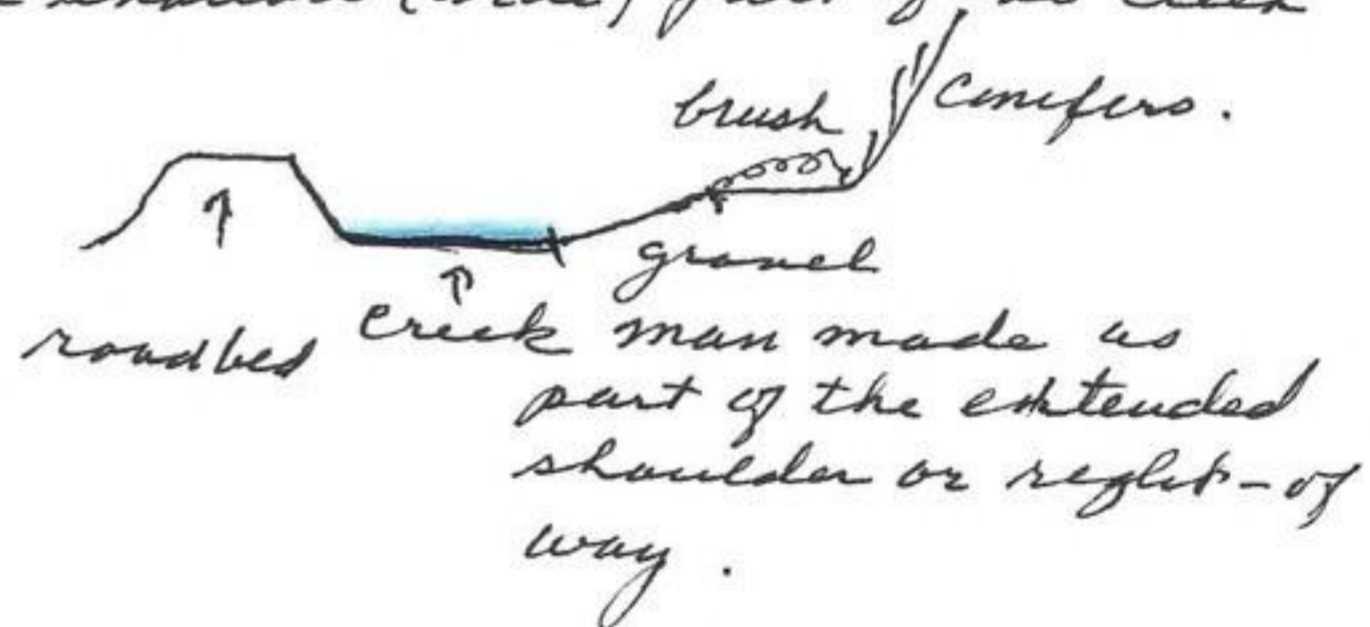 part of the creek
brush conifers.
gravel
roadbed creek man made as
part of the extended
shoulder or right-of
way.